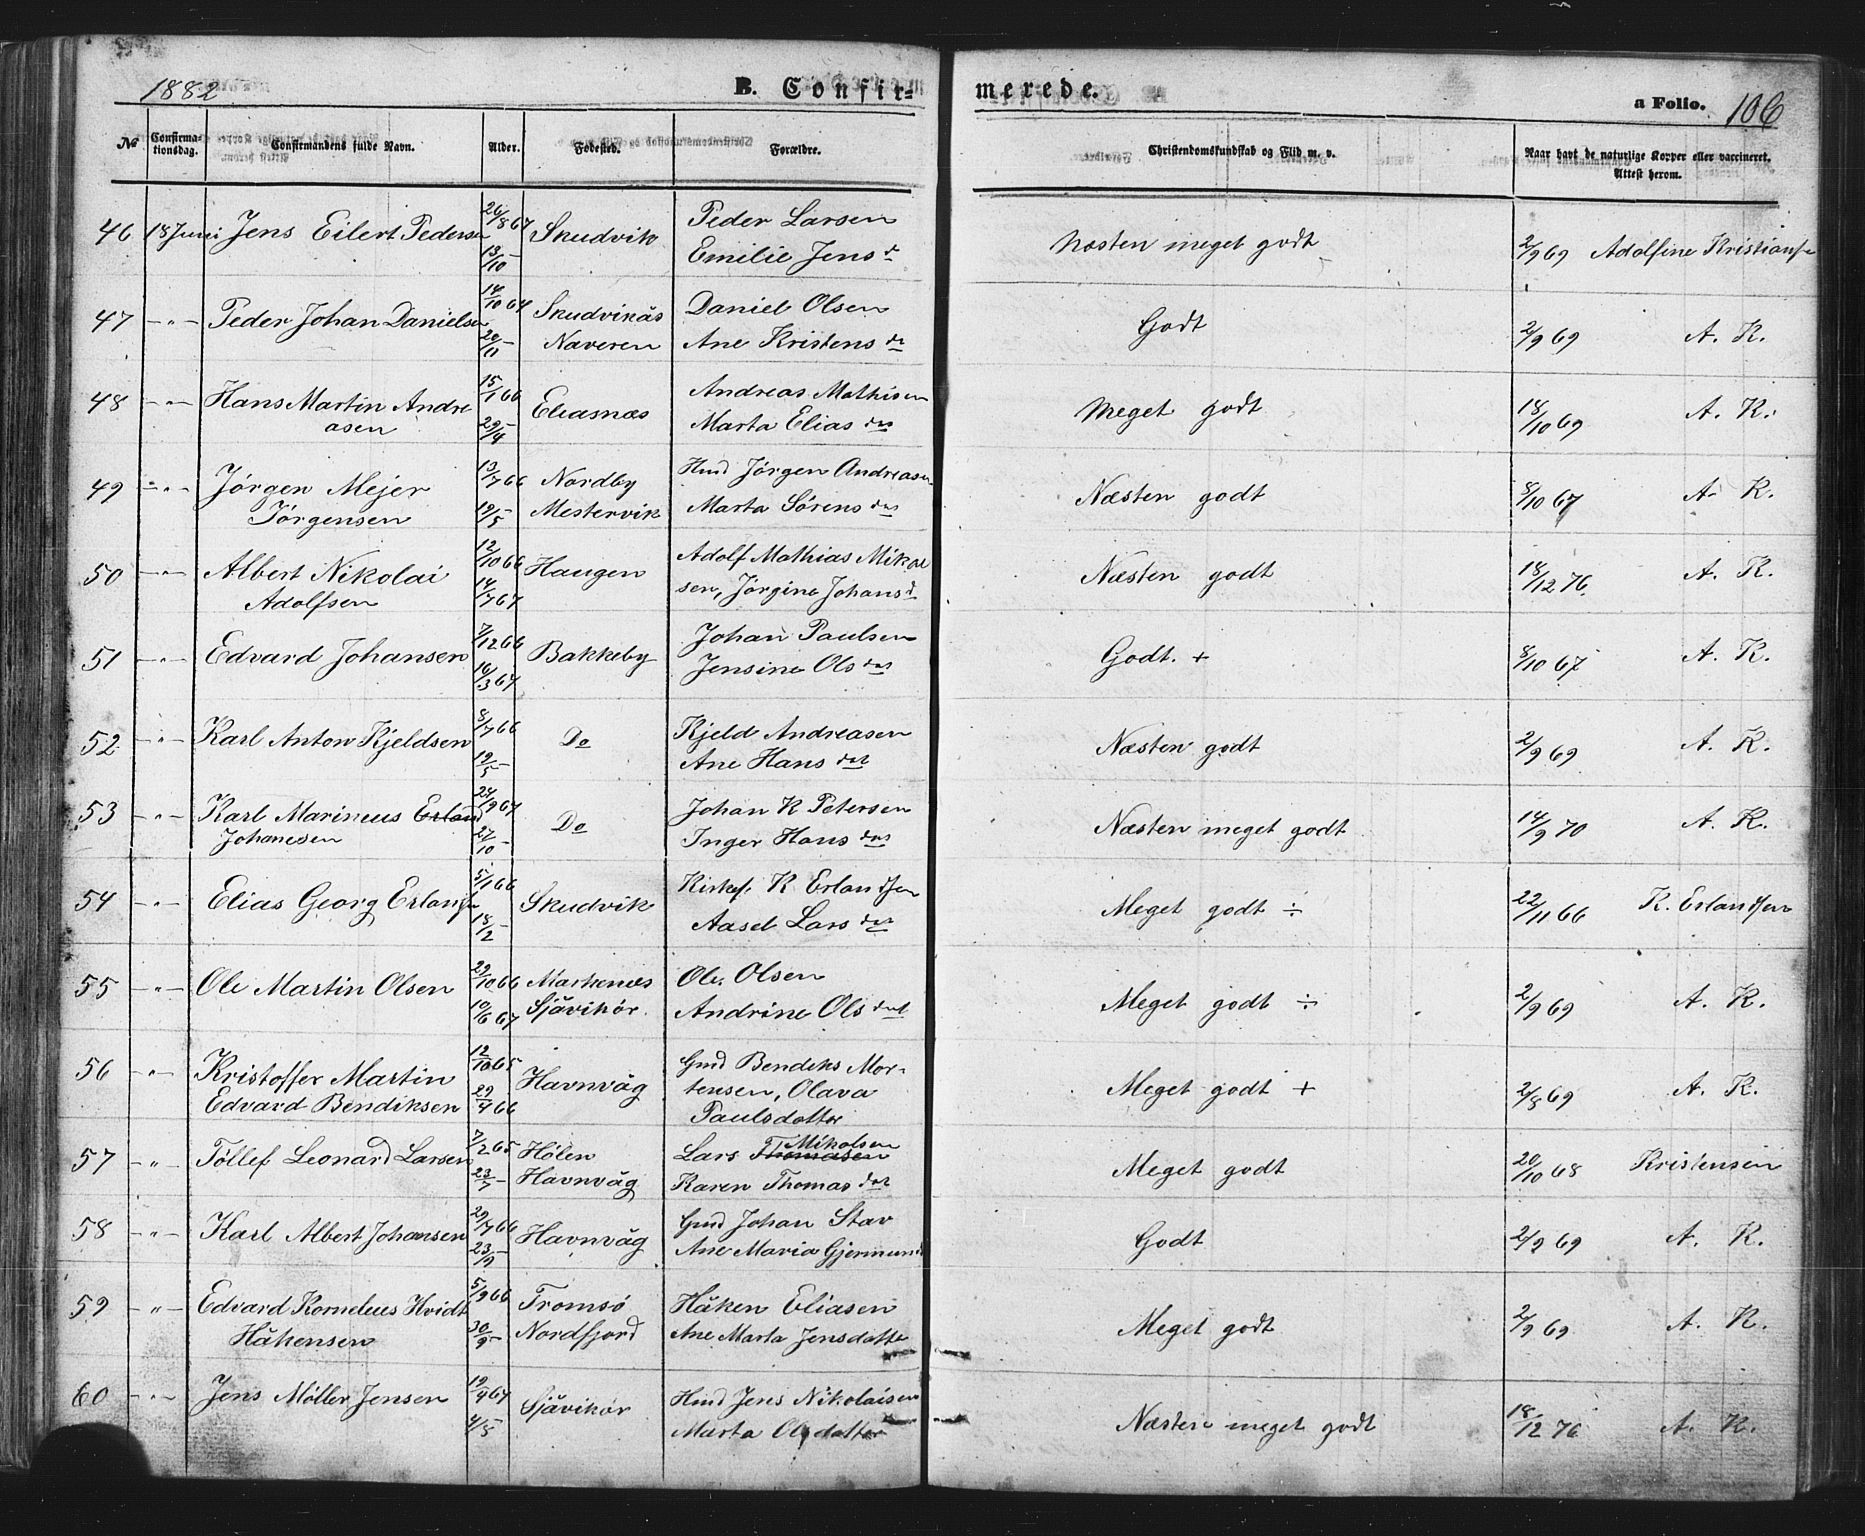 1882 B. Confir= merede. a Folio. 106
No Confirma-tionsdag. Confirmandens fulde Navn. Alder. Fødested. Forældre. Christendomskundskab og Flid m. v. Naar havt de naturlige Kopper eller vaccineret. Attest herom.
46 18 Juni Jens Eilert Pedersen 26/8 67 Skudvik Peder Larsen Næsten meget godt 2/9 69 Adolfine Kristians
13/10 - Emilie Jens d
47 -"- Peder Johan Danielsen 14/10 64 Skudvikås Daniel Olsen Godt 2/9 69 A. K.
20/11 - Naveren Ane Kristens da
48 -"- Hans Martin Andre 15/1 66 Eliasnæs Andreas Mathisen Meget godt 18/10 69 A. K.
asen 29/4 - Marta Elias das
49 -"- Jørgen Mejer 13/7 66 Nordby Hmd Jørgen Andreasen Næsten godt 8/10 67 A. K.
Jørgensen 19/5 - Mestervik Marta Sørens das
50 -"- Albert Nikolai 12/10 66 Haugen Adolf Mathias Mikal Næsten godt 18/12 76 A. K.
Adolfsen 14/7 67 sen, Jørgine Johans d
51 -"- Edvard Johansen 7/12 66 Bakkeby Johan Paulsen Godt. + 8/10 67 A. K.
16/3 67 Jensine Ols das
52 -"- Karl Anton Kjeldsen 8/7 66 Do Kjeld Andreasen Næsten godt 2/9 69 A. K.
19/5 - Ane Hans dat
53 -"- Karl Marineus Erland 24/9 67 Do Johan K Petersen Næsten meget godt 14/9 70 A. K.
Johanesen 27/10 - Inger Hans das
54 -"- Elias Georg Erlans 5/1 66 Skudvik Kirkes. K. Erlandsen Meget godt ÷ 22/11 66 K. Erlandsen
18/2 - Aasel Lars dat
55 -"- Ole Martin Olsen 29/10 66 Markenæs Ole Olsen Meget godt ÷ 2/9 69 A. K.
10/6 67 Sjåvikør. Andrine Ols dat
56 -"- Kristoffer Martin 12/10 65 Havnvåg Gmd Bendiks Mor- Meget godt + 2/8 69 A. K.
Edvard Bendiksen 29/4 66 tensen, Olava
Paulsdatter
57 -"- Tøllef Leonard Larsen 7/2 65 Hølen Lars Thomasen Mikalsen Meget godt 20/10 68 Kristensen
23/7 - Havnvåg Karen Thomas dat
58 -"- Karl Albert Johansen 29/7 66 Havnvåg Gmd Johan Stav Godt 2/9 69 A. K.
23/9 - Ane Maria Gjermund
59 -"- Edvard Kornelius Hvidt 5/9 66 Tromsø Håken Eliasen Meget godt 2/9 69 A. K.
Håkensen 30/9 - Nordfjord Ane Marta Jensdatte
60 -"- Jens Møller Jensen 19/4 67 Sjåvikør Hmd Jens Nikolaisen Næsten meget godt 18/12 76 A. K.
4/5 Marta Olsdatter